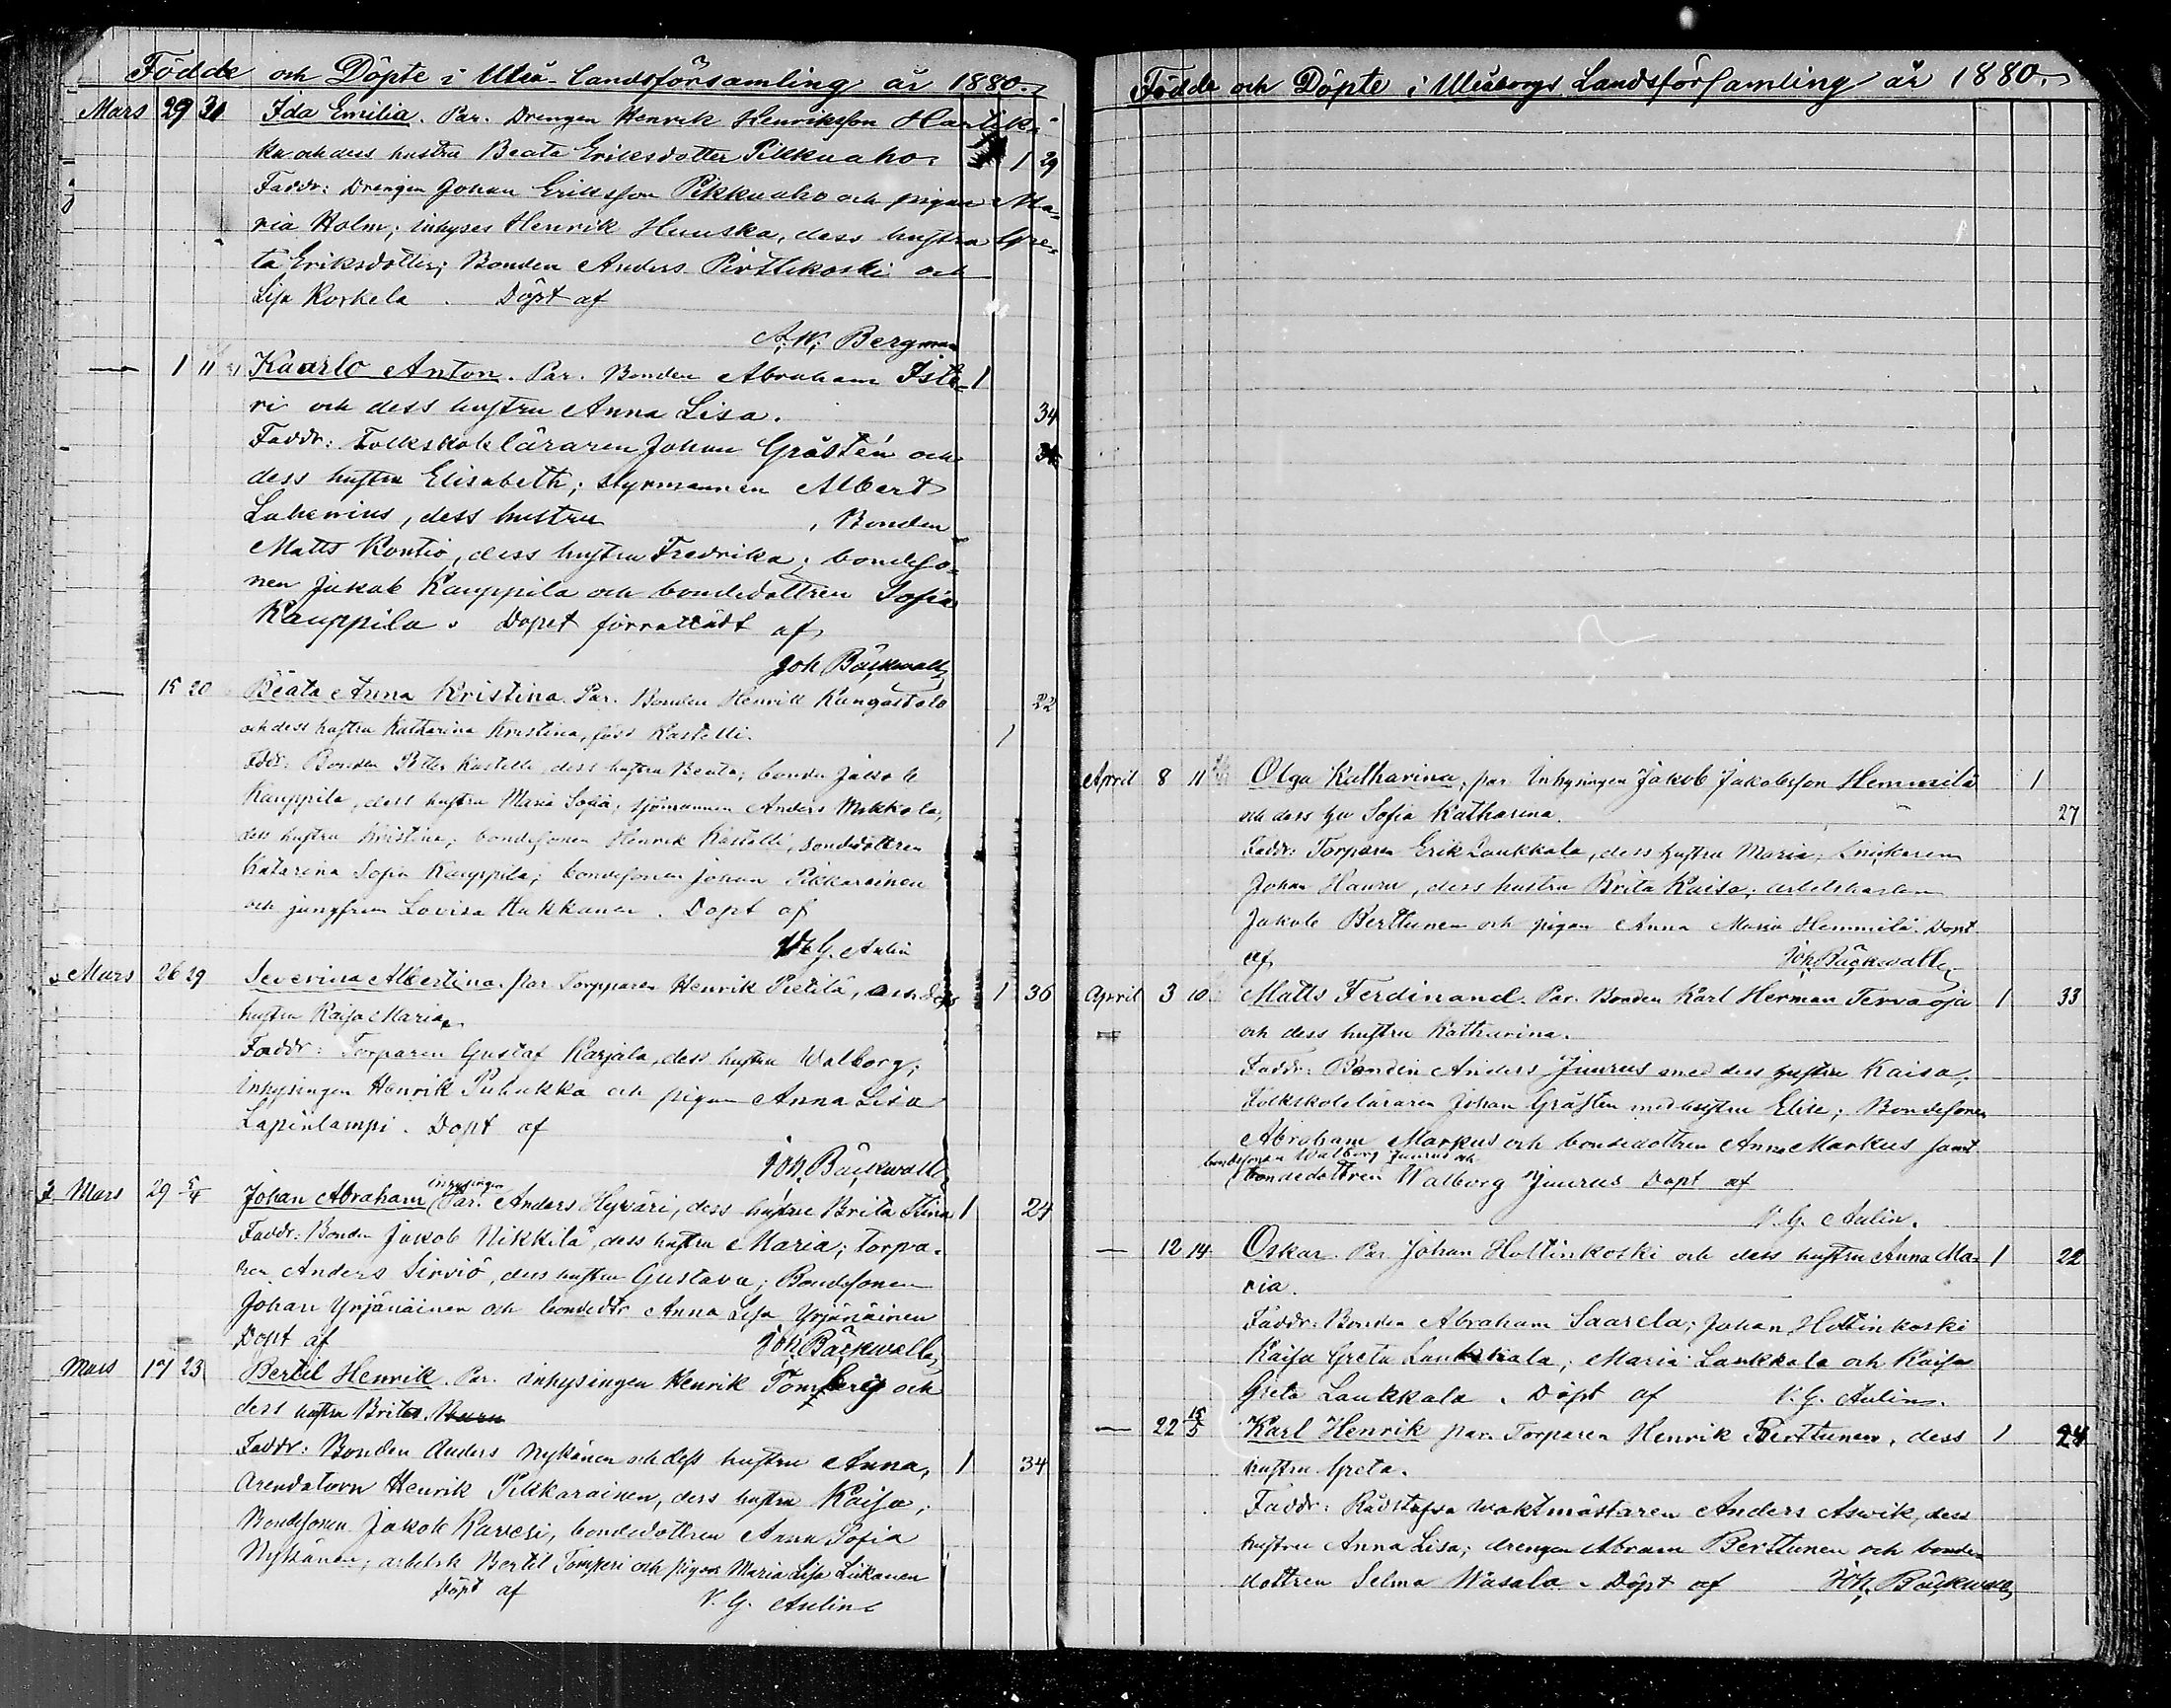 Födde och Döpte i Uleå-Landsförsamling år 1880.
Mars 29 31 Ida Emilia. Par. Drengen Henrik Henriksson Hartik-
ka och dess hustru Beata Eriksdotter Pikkuaho. 1 29
Faddr: Drengen Johan Eriksson Pikkuaho och pigan Ma-
ria Holm; inhyses Henrik Huuska, dess hustru Gre-
ta Eriksdotter; Bonden Anders Pirttikoski och
Lisa Korkela. Döpt af
A. W. Bergman
— 1 11 Kaarlo Anton. Par. Bonden Abraham Iste- 1
ri och dess hustru Anna Lisa. 34
Faddr: Folkskoleläraren Johan Gråstén och
dess hustru Elisabeth; styrmannen Albert
Lahenius, dess hustru , Bonden
Matts Kontio, dess hustru Fredrika; bondeso-
nen Jakob Kauppila och bondedottren Sofia
Kauppila. Dopet förrättadt af
Joh. Bäckwall
— 15 20 Beata Anna Kristina. Par. Bonden Henrik Kangastalo 22
och dess hustru Katharina Kristina, född Kastelli. 1
Fddr: Bonden Petter Kastelli dess hustru Beata; bonden Jakob
Kauppila, dess hustru Maria Sofia; sjömannen Anders Mikkola,
dess hustru Kristina; bondesonen Henrik Kastelli, bondedottren
Katarina Sofia Kauppila; bondesonen Johan Pikkarainen
och jungfrun Lovisa Hukkanen. Döpt af
V. G. Aulin
Mars 26 29 Severina Albertina. Par Torpparen Henrik Pietilä, och dess 1 36
hustru Kaisa Maria.
Faddr: Torparen Gustaf Karjala, dess hustru Walborg;
inhysingen Henrik Puhakka och pigan Anna Lisa
Lapinlampi. Döpt af
Joh. Bäckwall
Mars 29 5/4 Johan Abraham Par. inhysingen Anders Hyväri, dess hustru Brita Stina 1 24
Faddr: Bonden Jakob Nikkilä, dess hustru Maria; torpa-
ren Anders Sirviö, dess hustru Gustava; Bondesonen
Johan Yrjänäinen och bondedtr Anna Lisa Yrjänäinen
Döpt af Joh. Bäckwall
Mars 17 23 Bertil Henrik. Par. inhysingen Henrik Tomperi och
dess hustru Brita.
Faddr: Bonden Anders Nykänen och dess hustru Anna, 1 34
Arendatorn Henrik Pikkarainen, dess hustru Kaisa;
Bondesonen Jakob Karvesi, bondedottren Anna Sofia
Nykänen; arbetsk Bertil Tomperi och pigan Maria Lisa Liikanen
Döpt af V. G. Aulin
Födde och Döpte i Uleåborgs Landsförsamling år 1880.
April 8 11 Olga Katharina, par Inhysingen Jakob Jakobsson Hemmilä 1
och dess hu Sofia Katharina. 27
Faddr: Torparen Erik Laukkala, dess hustru Maria; Snickaren
Johan Hauru, dess hustru Brita Kaisa; arbetskarlen
Jakob Berttunen och pigan Anna Maria Hemmilä. Döpt
af Joh. Bäckwall
April 3 10 Matts Ferdinand. Par. Bonden Karl Herman Tervaoja 1 33
och dess hustru Katharina.
Faddr: Bonden Anders Juurus med dess hustru Kaisa,
Folkskoleläraren Johan Gråsten med hustru Elise; Bondesonen
Abraham Markus och bondedottren Anna Markus samt
bondesonen Walborg Juurus och
bondedottren Walborg Juurus Döpt af
V. G. Aulin.
— 12 14 Oskar. Par Johan Hottinkoski och dess hustru Anna Ma- 1 22
ria.
Faddr: Bonden Abraham Saarela; Johan Hottinkoski
Kaisa Greta Laukkala; Maria Laukkala och Kaisa
Greta Laukkala. Döpt af V. G. Aulin.
— 22 15/5 Karl Henrik par. Torparen Henrik Berttunen, dess 1 24
hustru Greta.
Faddr: Rådstufva waktmästaren Anders Aswik, dess
hustru Anna Lisa; drengen Abram Berttunen och bonde-
dottren Selma Wasala. Döpt af Joh. Bäckwall